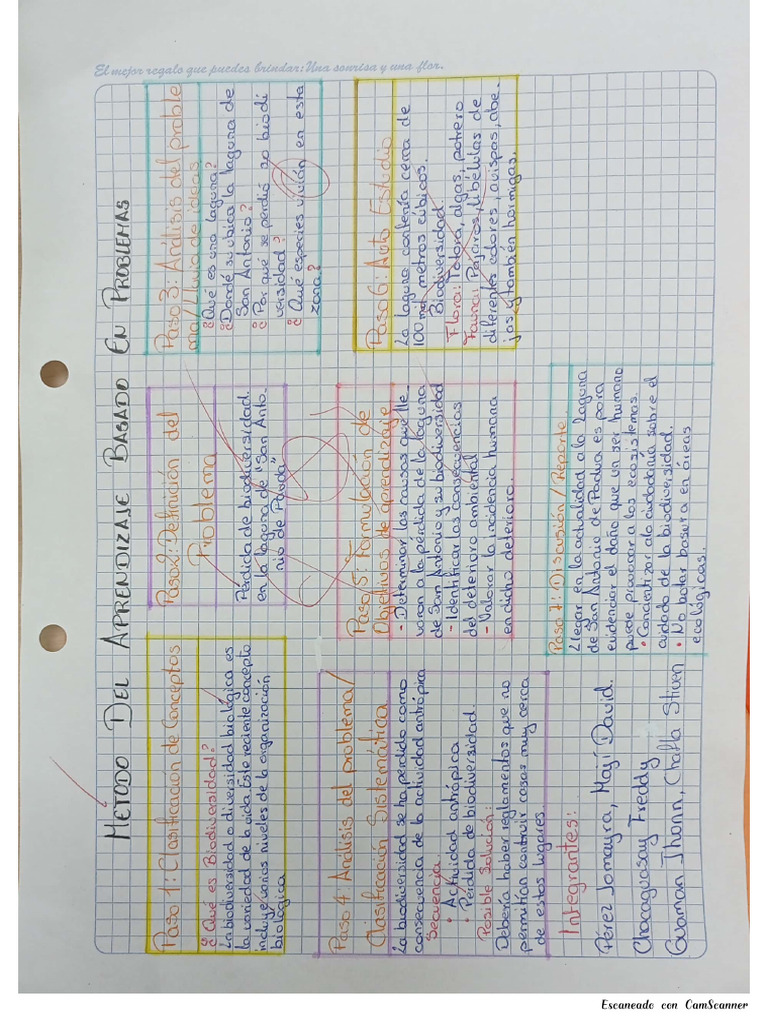 El mejor regalo que puedes brindar: Una sonrisa y una flor.
MÉTODO DEL APRENDIZAJE BASADO EN PROBLEMAS
Paso 1: Clasificación de Conceptos
¿Qué es Biodiversidad?
La biodiversidad o diversidad biológica es
la variedad de la vida. Este reciente concepto
incluye varios niveles de la organización
biológica
Paso 2: Definición del
Problema
Pérdida de biodiversidad
en la laguna de "San Anto
nio de Pauda"
Paso 3: Análisis del proble
ma/Lluvia de ideas
¿Qué es una laguna?
¿Dondé su ubica la laguna de
San Antonio?
¿Por qué se perdió so biodi
versidad?
¿Qué especies vivión en esta
zona?
Paso 4: Análisis del problema/
Clasificación Sistemática
La biodiversidad se ha perdido como
consecuencia de la actividad antrópica
Secuencia:
• Actividad antrópica
• Perdida de biodiversidad.
Posible Solución:
Debería haber reglamentos que no
permitian contruir casas muy cerca
de estos lugares.
Paso 5: Formulación de
Objetivos de aprendizaje
- Determinar las causas que lle
varon a la pérdida de la laguna
de San Antonio y su biodiversidad
- Identificar las consecuencias
del deterioro ambiental
- Valorar la incidencia humana
en dicho deterioro.
Paso 6: Auto Estudio
La laguna contenía cerca de
100 mil metros cúbicos.
Biodiversidad
Flora: Totora, algas, potrero
Fauna: Pájaros, libélulas de
diferentes colores, avispas, abe
jas y también hormigas.
Paso 7: Discusión / Reporte
Llegar en la actualidad a la laguna
de San Antonio de Padua es para
evidenciar el daño que un ser humano
puede provocar a los ecosistemas.
• Concientizar a la ciudadanía sobre el
cuidado de la biodiversidad.
• No botar basura en áreas
ecológicas.
Integrantes:
Pérez Jomayra, Mají David.
Chacaguasay Freddy
Guaman Jhonn, Chafla Stiven
Escaneado con CamScanner